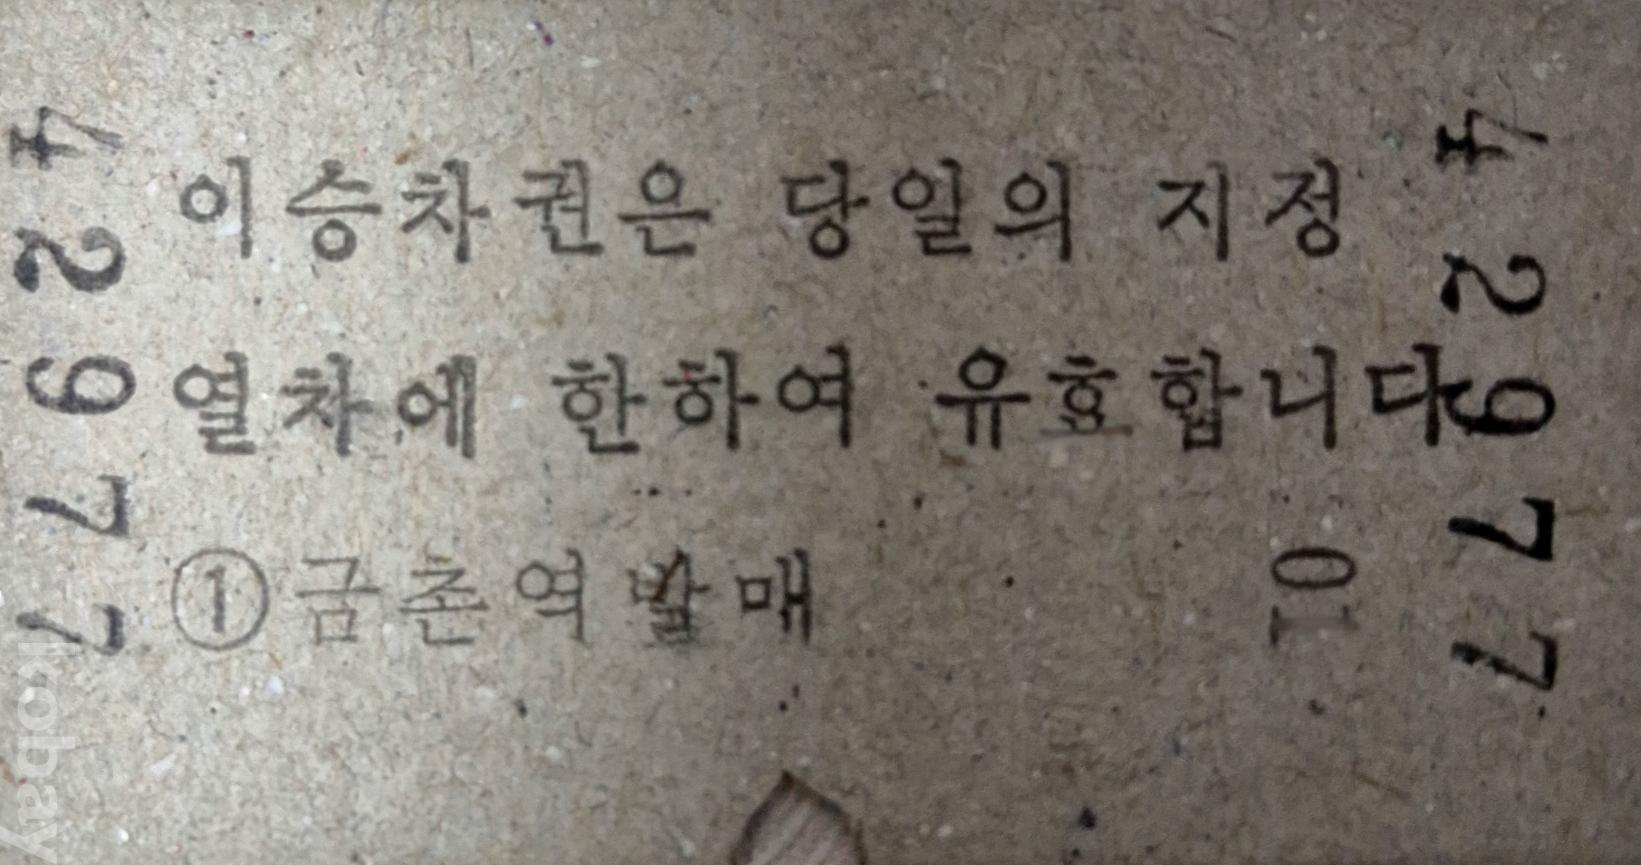 42977
이승차권은 당일의 지정
열차에 한하여 유효합니다
①금촌역발매
01
42977
kobay